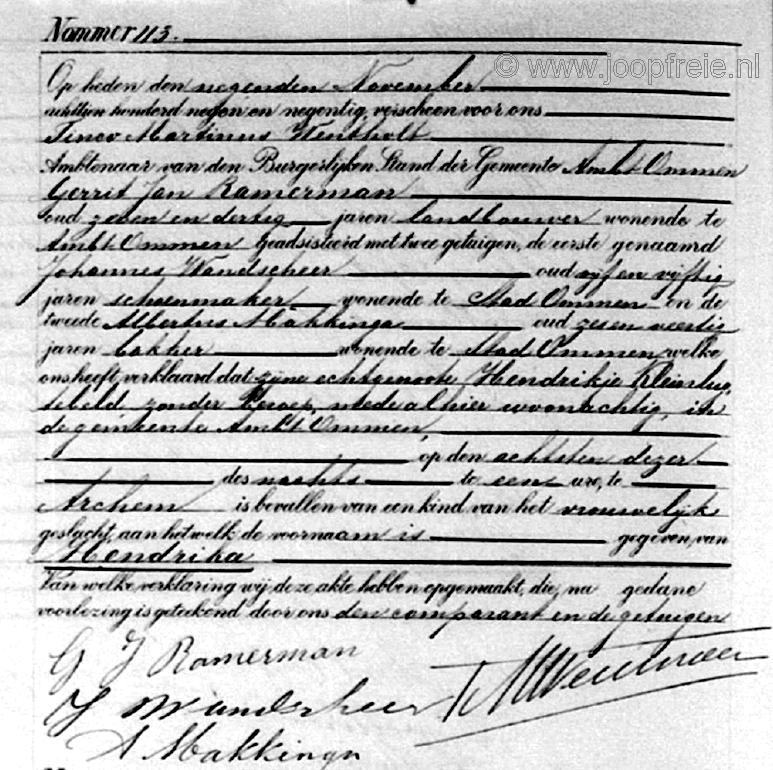 Nommer 113.
© www.joopfreie.nl
Op heden den negenden November
achttien honderd negen en negentig, verscheen voor ons
Martinus
Ambtenaar van den Burgerlijken Stand der Gemeente Ambt Ommen
Gerrit Jan Ramerman
oud zeven en dertig jaren landbouwer wonende te
Ambt Ommen Geadsisteerd met twee getuigen, de eerste genaamd
Johannes Wandscheer oud vijf en vijftig
jaren schoenmaker wonende te Stad Ommen en de
tweede Albertus Makkinga oud zes en veertig
jaren bakker wonende te Stad Ommen welke
ons heeft verklaard dat zijne echtgenoote Hendrikje Kleinlu¸
tebeld, zonder beroep, mede alhier woonachtig, in
de gemeente Ambt Ommen,
op den achtsten dezer
des nachts te een ure, te
Archem is bevallen van een kind van het vrouwelijk
geslacht, aan hetwelk de voornaam is gegeven, van
Hendrika
Van welke verklaring wij deze akte hebben opgemaakt, die, na gedane
voorlezing is geteekend door ons den comparant en de getuigen
G J Ramerman
J Wandscheer
A Makkinga